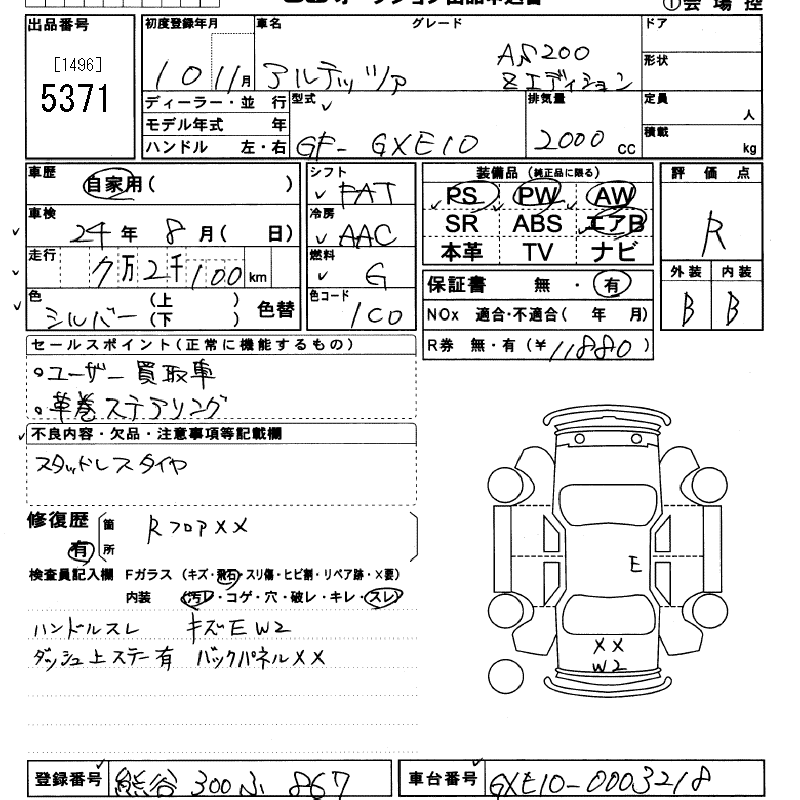 オークション出品申込書
①会場控
出品番号
[1496]
5371
初度登録年月 車名 グレード
10 11月 アルテッツァ AS200
Zエディション
ディーラー・並行 型式 排気量
モデル年式 年
ハンドル 左・右 GF- GXE10 2000 CC
ドア
形状
定員
人
積載
kg
車歴 自家用( )
車検 24年 8月( 日)
走行 7万2千100km
色 シルバー (上 )
(下 ) 色替
シフト FAT
冷房 AAC
燃料 G
色コード 1C0
装備品(純正品に限る)
PS PW AW
SR ABS エアB
本革 TV ナビ
保証書 無・有
NOx 適合・不適合( 年 月)
R券 無・有(¥11880)
評価点
R
外装 内装
B B
セールスポイント(正常に機能するもの)
○ユーザー買取車
○革巻ステアリング
不良内容・欠品・注意事項等記載欄
スタッドレスタイヤ
修復歴 有 箇所 Rフロアxx
検査員記入欄 Fガラス (キズ・飛石・スリ傷・ヒビ割・リペア跡・X要)
内装 (汚レ・コゲ・穴・破レ・キレ・スレ)
ハンドルスレ キズE W2
ダッシュ上ステー有 バックパネルxx
E
xx
W2
登録番号 熊谷 300 ふ 867
車台番号 GXE10-0003218